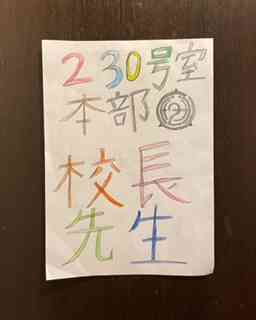 230号室
本部②
校長
先生